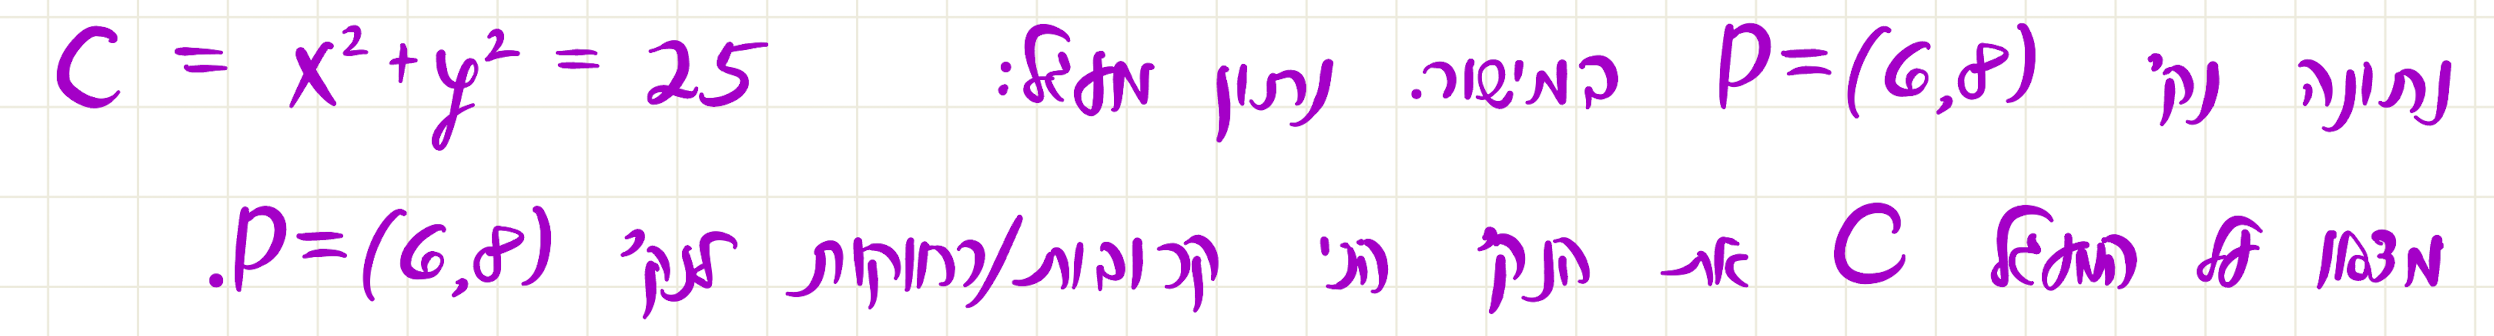 נתונה נק' P=(6,8) במישור. נתון מעגל: C = x²+y² = 25
מצאו על המעגל C את הנק' הכי קרובה/רחוקה לנק' P=(6,8).